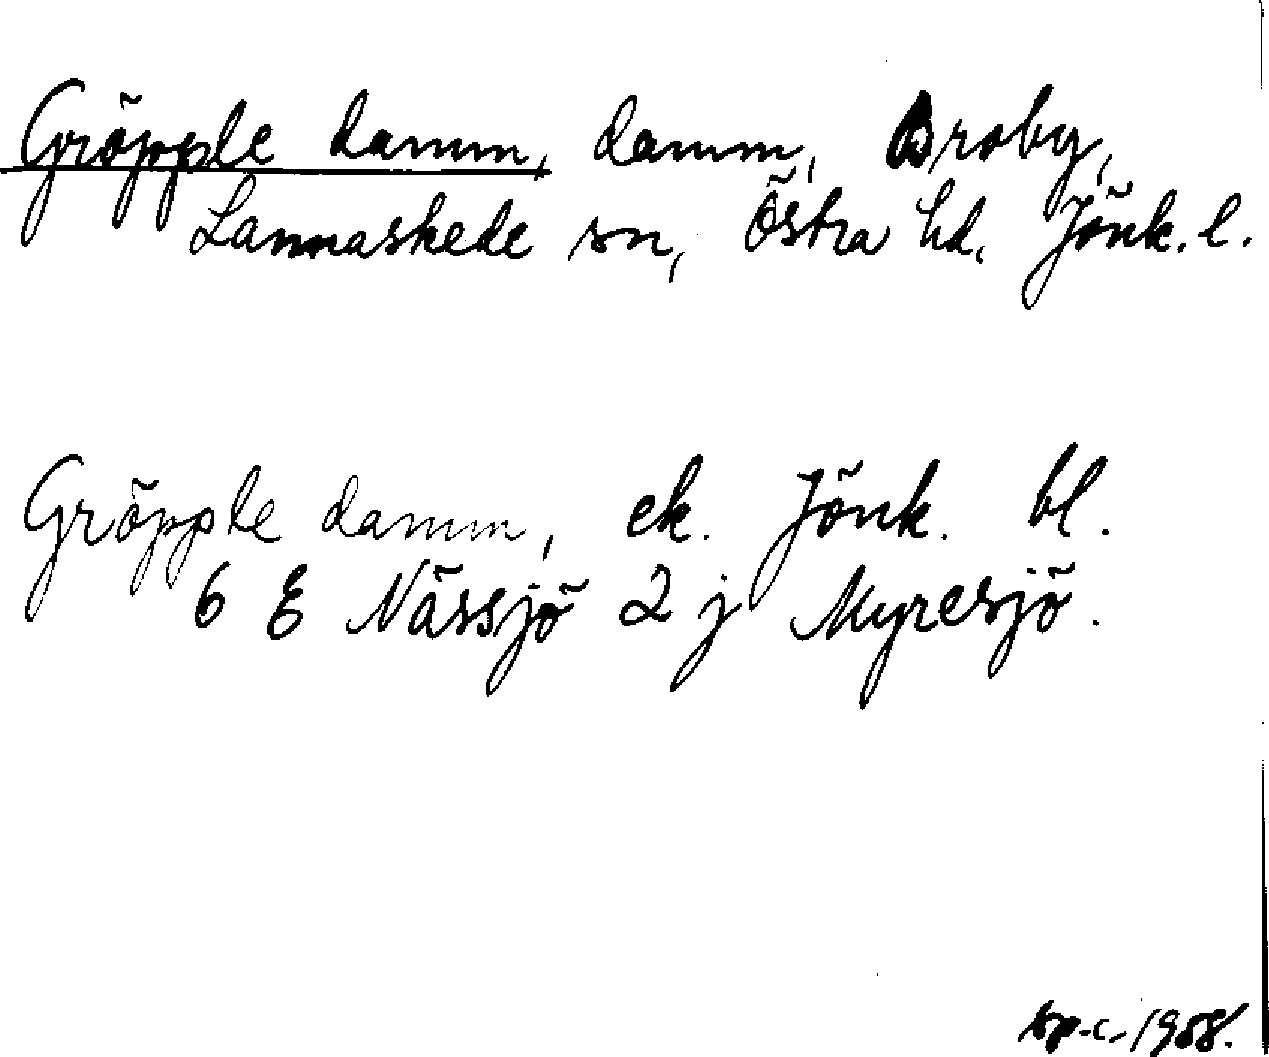 Gröpple damm, damm, Broby,
Lannaskede sn, Östra hd. Jönk. l.
Gröpple damm, ek. Jönk. bl.
6 E Nässjö 2 j Myresjö.
1958.